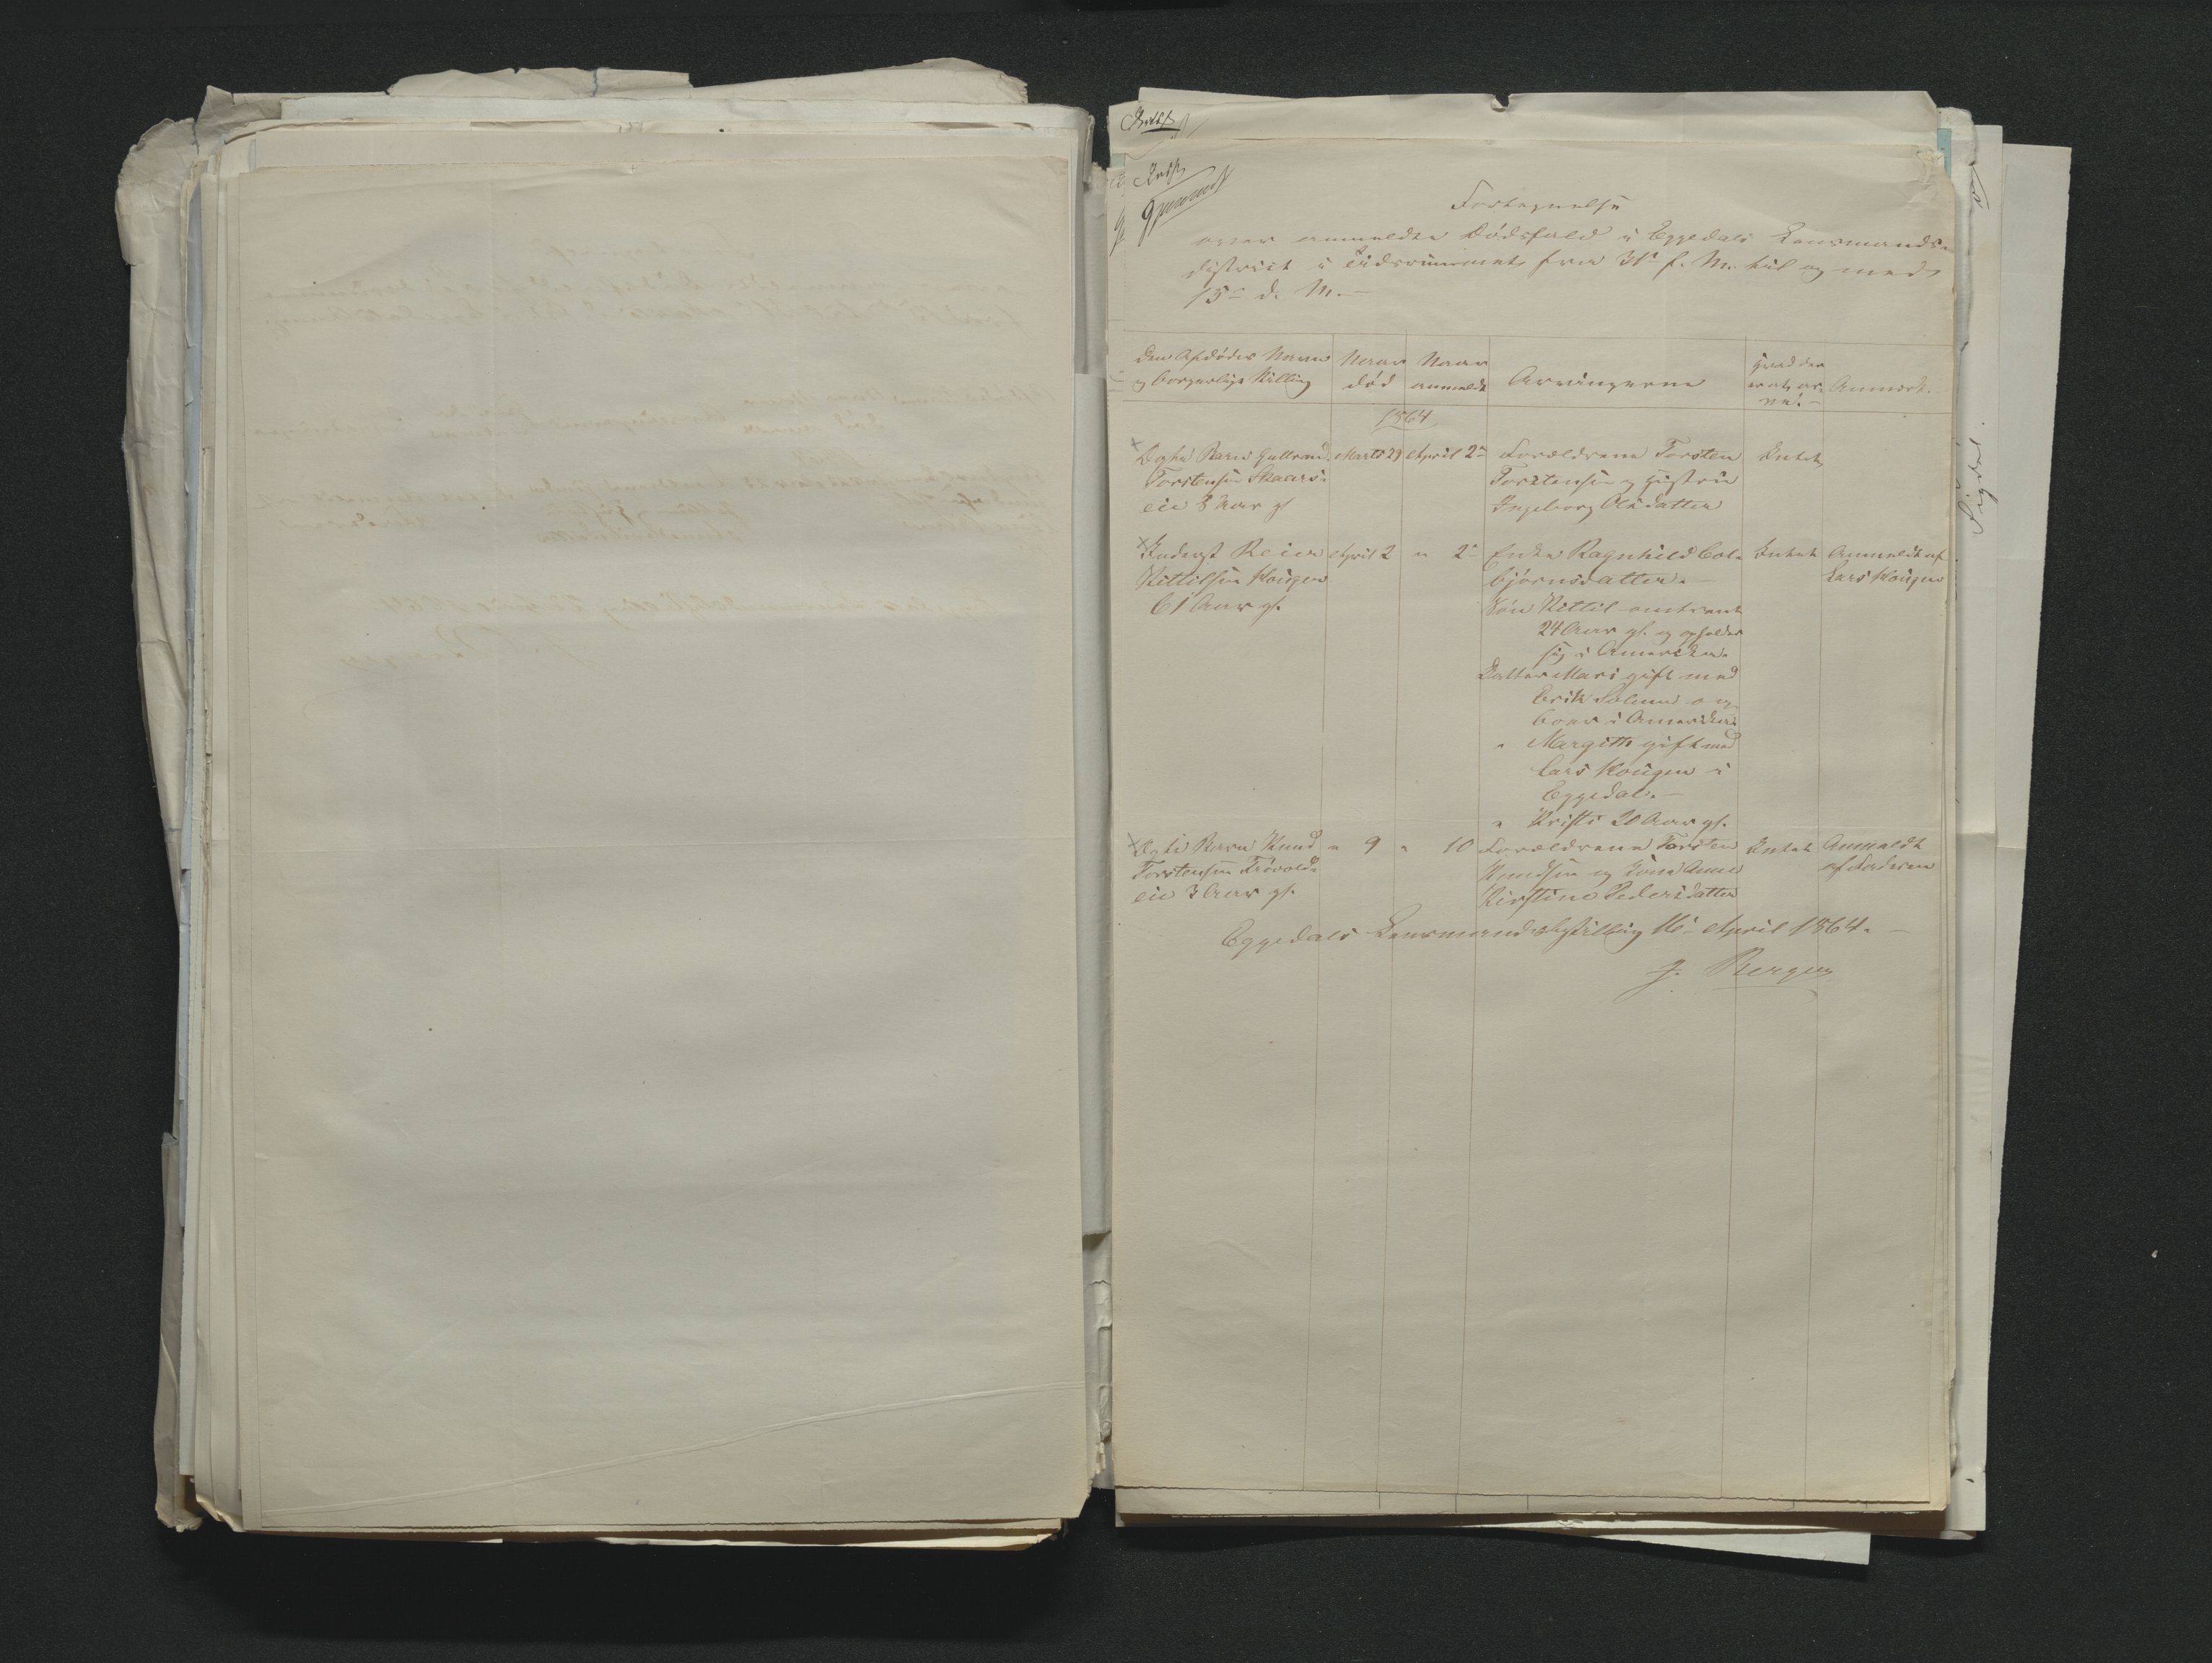 Fortegnelse
over anmeldte Dødsfald i Eggedals Lensmands-
district i Tidsrummet fra 31te f. M. til og med
15de d. M. —
Den Afdødes Navn
og borgerlige Stilling
Naar
død
Naar
anmeldt
Arvingerne
Hvad der
er at ar-
ve. —
Anmærk.
1864
× Ægte Barn Gullrand
Torstensen Skaars-
eie 8 Aar gl
Marts 29
April 2den
Forældrene Torsten
Torstensen og Hustru
Ingeborg Olsdatter
Intet
× Inderst Reier
Kittilsen Kougen
61 Aar gl.
April 2
" 2den
Enke Ragnhild Col-
bjørnsdatter. —
Søn Kittil omtrent
24 Aar gl. og opholder
sig i Amerika.
Datter Mari gift med
Erik Solum og
boer i Amerika
" Margith gift med
Lars Kougen i
Eggedal. —
" Kristi 20 Aar gl.
Intet
Anmeldt af
Lars Kougen
× Ægte Barn Knud
Torstensen Frøvold-
eie 3 Aar gl.
" 9
" 10
Forældrene Torsten
Knudsen og Kone Anne
Kirstine Pedersdatter
Intet
Anmeldt
af Faderen
Eggedals Lensmandsbestilling 16de April 1864. —
J. Bergen
Sigdal.